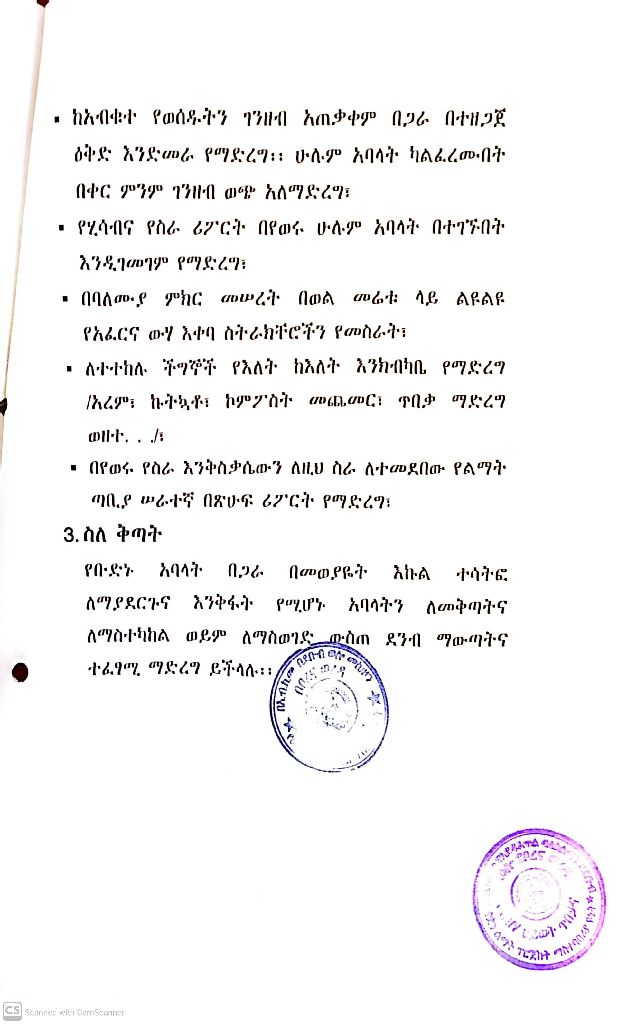 ▪ ከአብቁተ የወሰዱትን ገንዘብ አጠቃቀም በጋራ በተዘጋጀ
ዕቅድ እንድመራ የማድረግ፡፡ ሁሉም አባላት ካልፈረሙበት
በቀር ምንም ገንዘብ ወጭ አለማድረግ፣
▪ የሂሳብና የስራ ሪፖርት በየወሩ ሁሉም አባላት በተገኙበት
እንዲገመገም የማድረግ፣
▪ በባለሙያ ምክር መሠረት በወል መሬቱ ላይ ልዩልዩ
የአፈርና ውሃ እቀባ ስትራክቸሮችን የመስራት፣
▪ ለተተከሉ ችግኞች የእለት ከእለት እንክብካቤ የማድረግ
/አረም፣ ኩትኳቶ፣ ኮምፖስት መጨመር፣ ጥበቃ ማድረግ
ወዘተ. . ./፣
▪ በየወሩ የስራ እንቅስቃሴውን ለዚህ ስራ ለተመደበው የልማት
ጣቢያ ሠራተኛ በጽሁፍ ሪፖርት የማድረግ፣
3. ስለ ቅጣት
የቡድኑ አባላት በጋራ በመወያየት እኩል ተሳትፎ
ለማያደርጉና እንቅፋት የሚሆኑ አባላትን ለመቅጣትና
ለማስተካከል ወይም ለማስወገድ ውስጠ ደንብ ማውጣትና
ተፈፃሚ ማድረግ ይችላሉ፡፡
CS Scanned with CamScanner